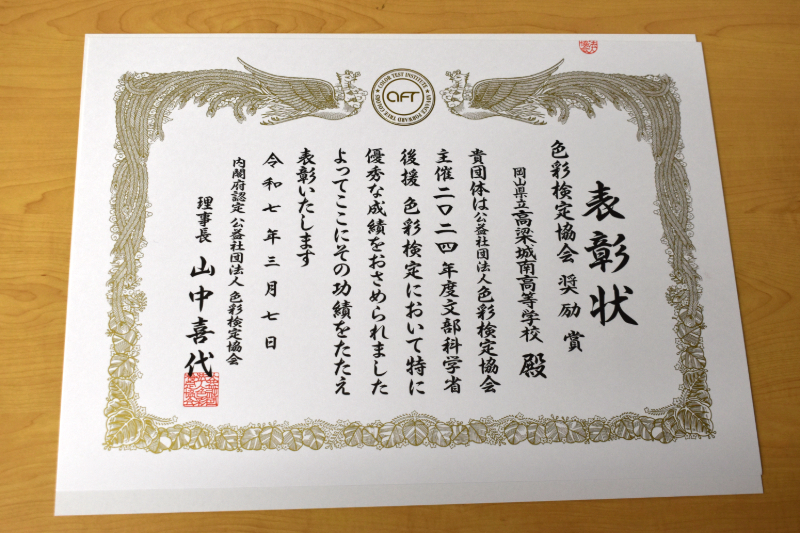 表彰状
色彩検定協会 奨励賞
岡山県立高梁城南高等学校 殿
貴団体は公益社団法人色彩検定協会
主催二〇二四年度文部科学省
後援 色彩検定において特に
優秀な成績をおさめられました
よってここにその功績をたたえ
表彰いたします
令和七年三月七日
内閣府認定 公益社団法人 色彩検定協会
理事長 山中喜代
AFT
COLOR TEST INSTITUTE
ADVANCE FORWARD TRUE COLORS